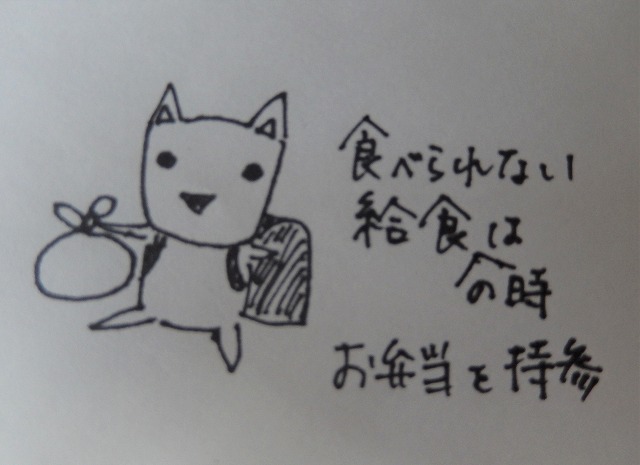 食べられない
給食は
の時
お弁当を持参